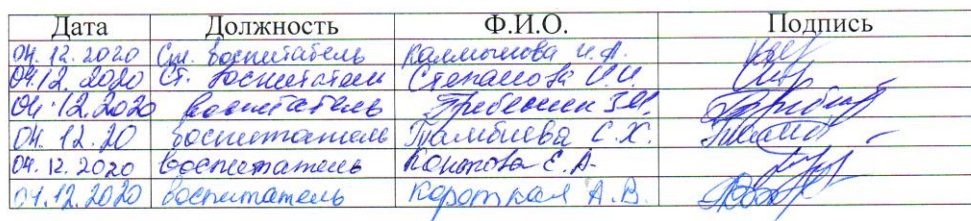 Дата Должность Ф.И.О. Подпись
04.12.2020 Ст. воспитатель Калмыкова И.А.
04.12.2020 Ст. воспитатель Степанова И.И.
04.12.2020 воспитатель З.М.
04.12.20 воспитатель Тамбиева С.Х.
04.12.2020 воспитатель Е.А.
04.12.2020 воспитатель Короткая А.В.